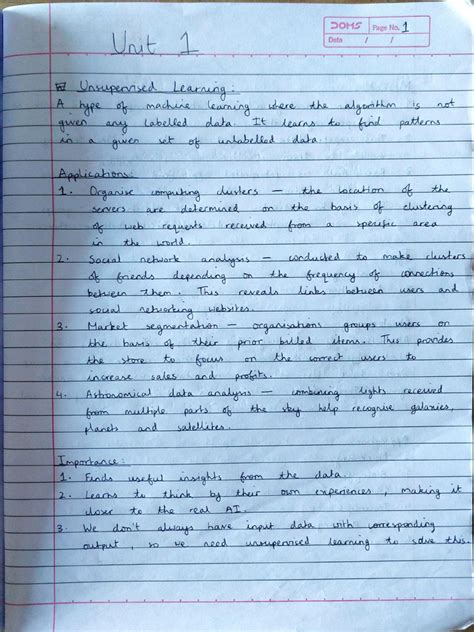 DOMS Page No. 1
Date / /
Unit 1
Unsupervised Learning:
A type of machine learning where the algorithm is not
given any labelled data. It learns to find patterns
in a given set of unlabelled data.
Applications:
1. Organise computing clusters — the location of the
servers are determined on the basis of clustering
of web requests received from a specific area
in the world.
2. Social network analysis — conducted to make clusters
of friends depending on the frequency of connections
between them. This reveals links between users and
social networking websites.
3. Market segmentation — organisations groups users on
the basis of their prior billed items. This provides
the store to focus on the correct users to
increase sales and profits.
4. Astronomical data analysis — combining lights received
from multiple parts of the sky help recognise galaxies,
planets and satellites.
Importance:
1. Finds useful insights from the data.
2. Learns to think by their own experiences, making it
closer to the real AI.
3. We don't always have input data with corresponding
output, so we need unsupervised learning to solve this.